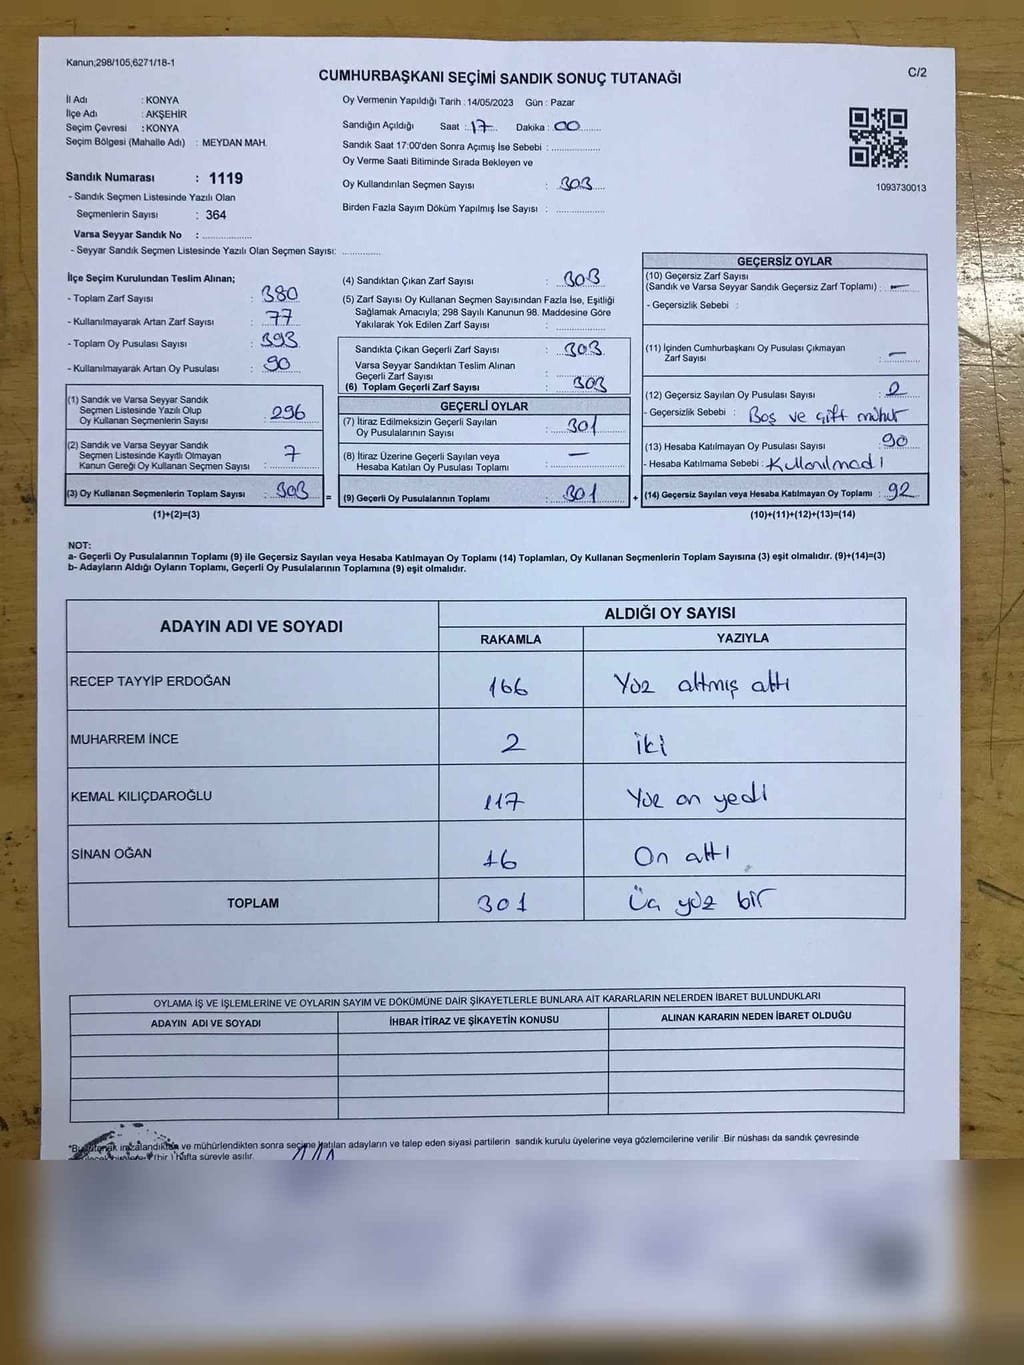 Kanun;298/105,6271/18-1
CUMHURBAŞKANI SEÇİMİ SANDIK SONUÇ TUTANAĞI
C/2
İl Adı : KONYA
İlçe Adı : AKŞEHİR
Seçim Çevresi : KONYA
Seçim Bölgesi (Mahalle Adı) : MEYDAN MAH.
Sandık Numarası : 1119
- Sandık Seçmen Listesinde Yazılı Olan
Seçmenlerin Sayısı : 364
Varsa Seyyar Sandık No : ..............
- Seyyar Sandık Seçmen Listesinde Yazılı Olan Seçmen Sayısı: ..............
Oy Vermenin Yapıldığı Tarih : 14/05/2023 Gün : Pazar
Sandığın Açıldığı Saat : 17 Dakika : 00
Sandık Saat 17:00'den Sonra Açımış İse Sebebi : ..............
Oy Verme Saati Bitiminde Sırada Bekleyen ve
Oy Kullandırılan Seçmen Sayısı : 303
Birden Fazla Sayım Döküm Yapılmış İse Sayısı : ..............
1093730013
İlçe Seçim Kurulundan Teslim Alınan;
- Toplam Zarf Sayısı : 380
- Kullanılmayarak Artan Zarf Sayısı : 77
- Toplam Oy Pusulası Sayısı : 393
- Kullanılmayarak Artan Oy Pusulası : 90
(1) Sandık ve Varsa Seyyar Sandık
Seçmen Listesinde Yazılı Olup
Oy Kullanan Seçmenlerin Sayısı : 296
(2) Sandık ve Varsa Seyyar Sandık
Seçmen Listesinde Kayıtlı Olmayan
Kanun Gereği Oy Kullanan Seçmen Sayısı : 7
(3) Oy Kullanan Seçmenlerin Toplam Sayısı : 303 =
(1)+(2)=(3)
(4) Sandıktan Çıkan Zarf Sayısı : 303
(5) Zarf Sayısı Oy Kullanan Seçmen Sayısından Fazla İse, Eşitliği
Sağlamak Amacıyla; 298 Sayılı Kanunun 98. Maddesine Göre
Yakılarak Yok Edilen Zarf Sayısı : ..............
Sandıkta Çıkan Geçerli Zarf Sayısı : 303
Varsa Seyyar Sandıktan Teslim Alınan
Geçerli Zarf Sayısı : ..............
(6) Toplam Geçerli Zarf Sayısı : 303
GEÇERLİ OYLAR
(7) İtiraz Edilmeksizin Geçerli Sayılan
Oy Pusulalarının Sayısı : 301
(8) İtiraz Üzerine Geçerli Sayılan veya
Hesaba Katılan Oy Pusulası Toplamı : —
(9) Geçerli Oy Pusulalarının Toplamı : 301 +
GEÇERSİZ OYLAR
(10) Geçersiz Zarf Sayısı
(Sandık ve Varsa Seyyar Sandık Geçersiz Zarf Toplamı) : —
- Geçersizlik Sebebi :
(11) İçinden Cumhurbaşkanı Oy Pusulası Çıkmayan
Zarf Sayısı : —
(12) Geçersiz Sayılan Oy Pusulası Sayısı : 2
- Geçersizlik Sebebi : Boş ve çift mühür
(13) Hesaba Katılmayan Oy Pusulası Sayısı : 90
- Hesaba Katılmama Sebebi : Kullanılmadı
(14) Geçersiz Sayılan veya Hesaba Katılmayan Oy Toplamı : 92
(10)+(11)+(12)+(13)=(14)
NOT:
a- Geçerli Oy Pusulalarının Toplamı (9) ile Geçersiz Sayılan veya Hesaba Katılmayan Oy Toplamı (14) Toplamları, Oy Kullanan Seçmenlerin Toplam Sayısına (3) eşit olmalıdır. (9)+(14)=(3)
b- Adayların Aldığı Oyların Toplamı, Geçerli Oy Pusulalarının Toplamına (9) eşit olmalıdır.
ADAYIN ADI VE SOYADI ALDIĞI OY SAYISI
RAKAMLA YAZIYLA
RECEP TAYYİP ERDOĞAN 166 Yüz altmış altı
MUHARREM İNCE 2 iki
KEMAL KILIÇDAROĞLU 117 Yüz on yedi
SİNAN OĞAN 16 On altı
TOPLAM 301 Üç yüz bir
OYLAMA İŞ VE İŞLEMLERİNE VE OYLARIN SAYIM VE DÖKÜMÜNE DAİR ŞİKAYETLERLE BUNLARA AİT KARARLARIN NELERDEN İBARET BULUNDUKLARI
ADAYIN ADI VE SOYADI İHBAR İTİRAZ VE ŞİKAYETİN KONUSU ALINAN KARARIN NEDEN İBARET OLDUĞU
*Bu tutanak imzalandıktan ve mühürlendikten sonra seçime katılan adayların ve talep eden siyasi partilerin sandık kurulu üyelerine veya gözlemcilerine verilir .Bir nüshası da sandık çevresinde
(bir ) hafta süreyle asılır.